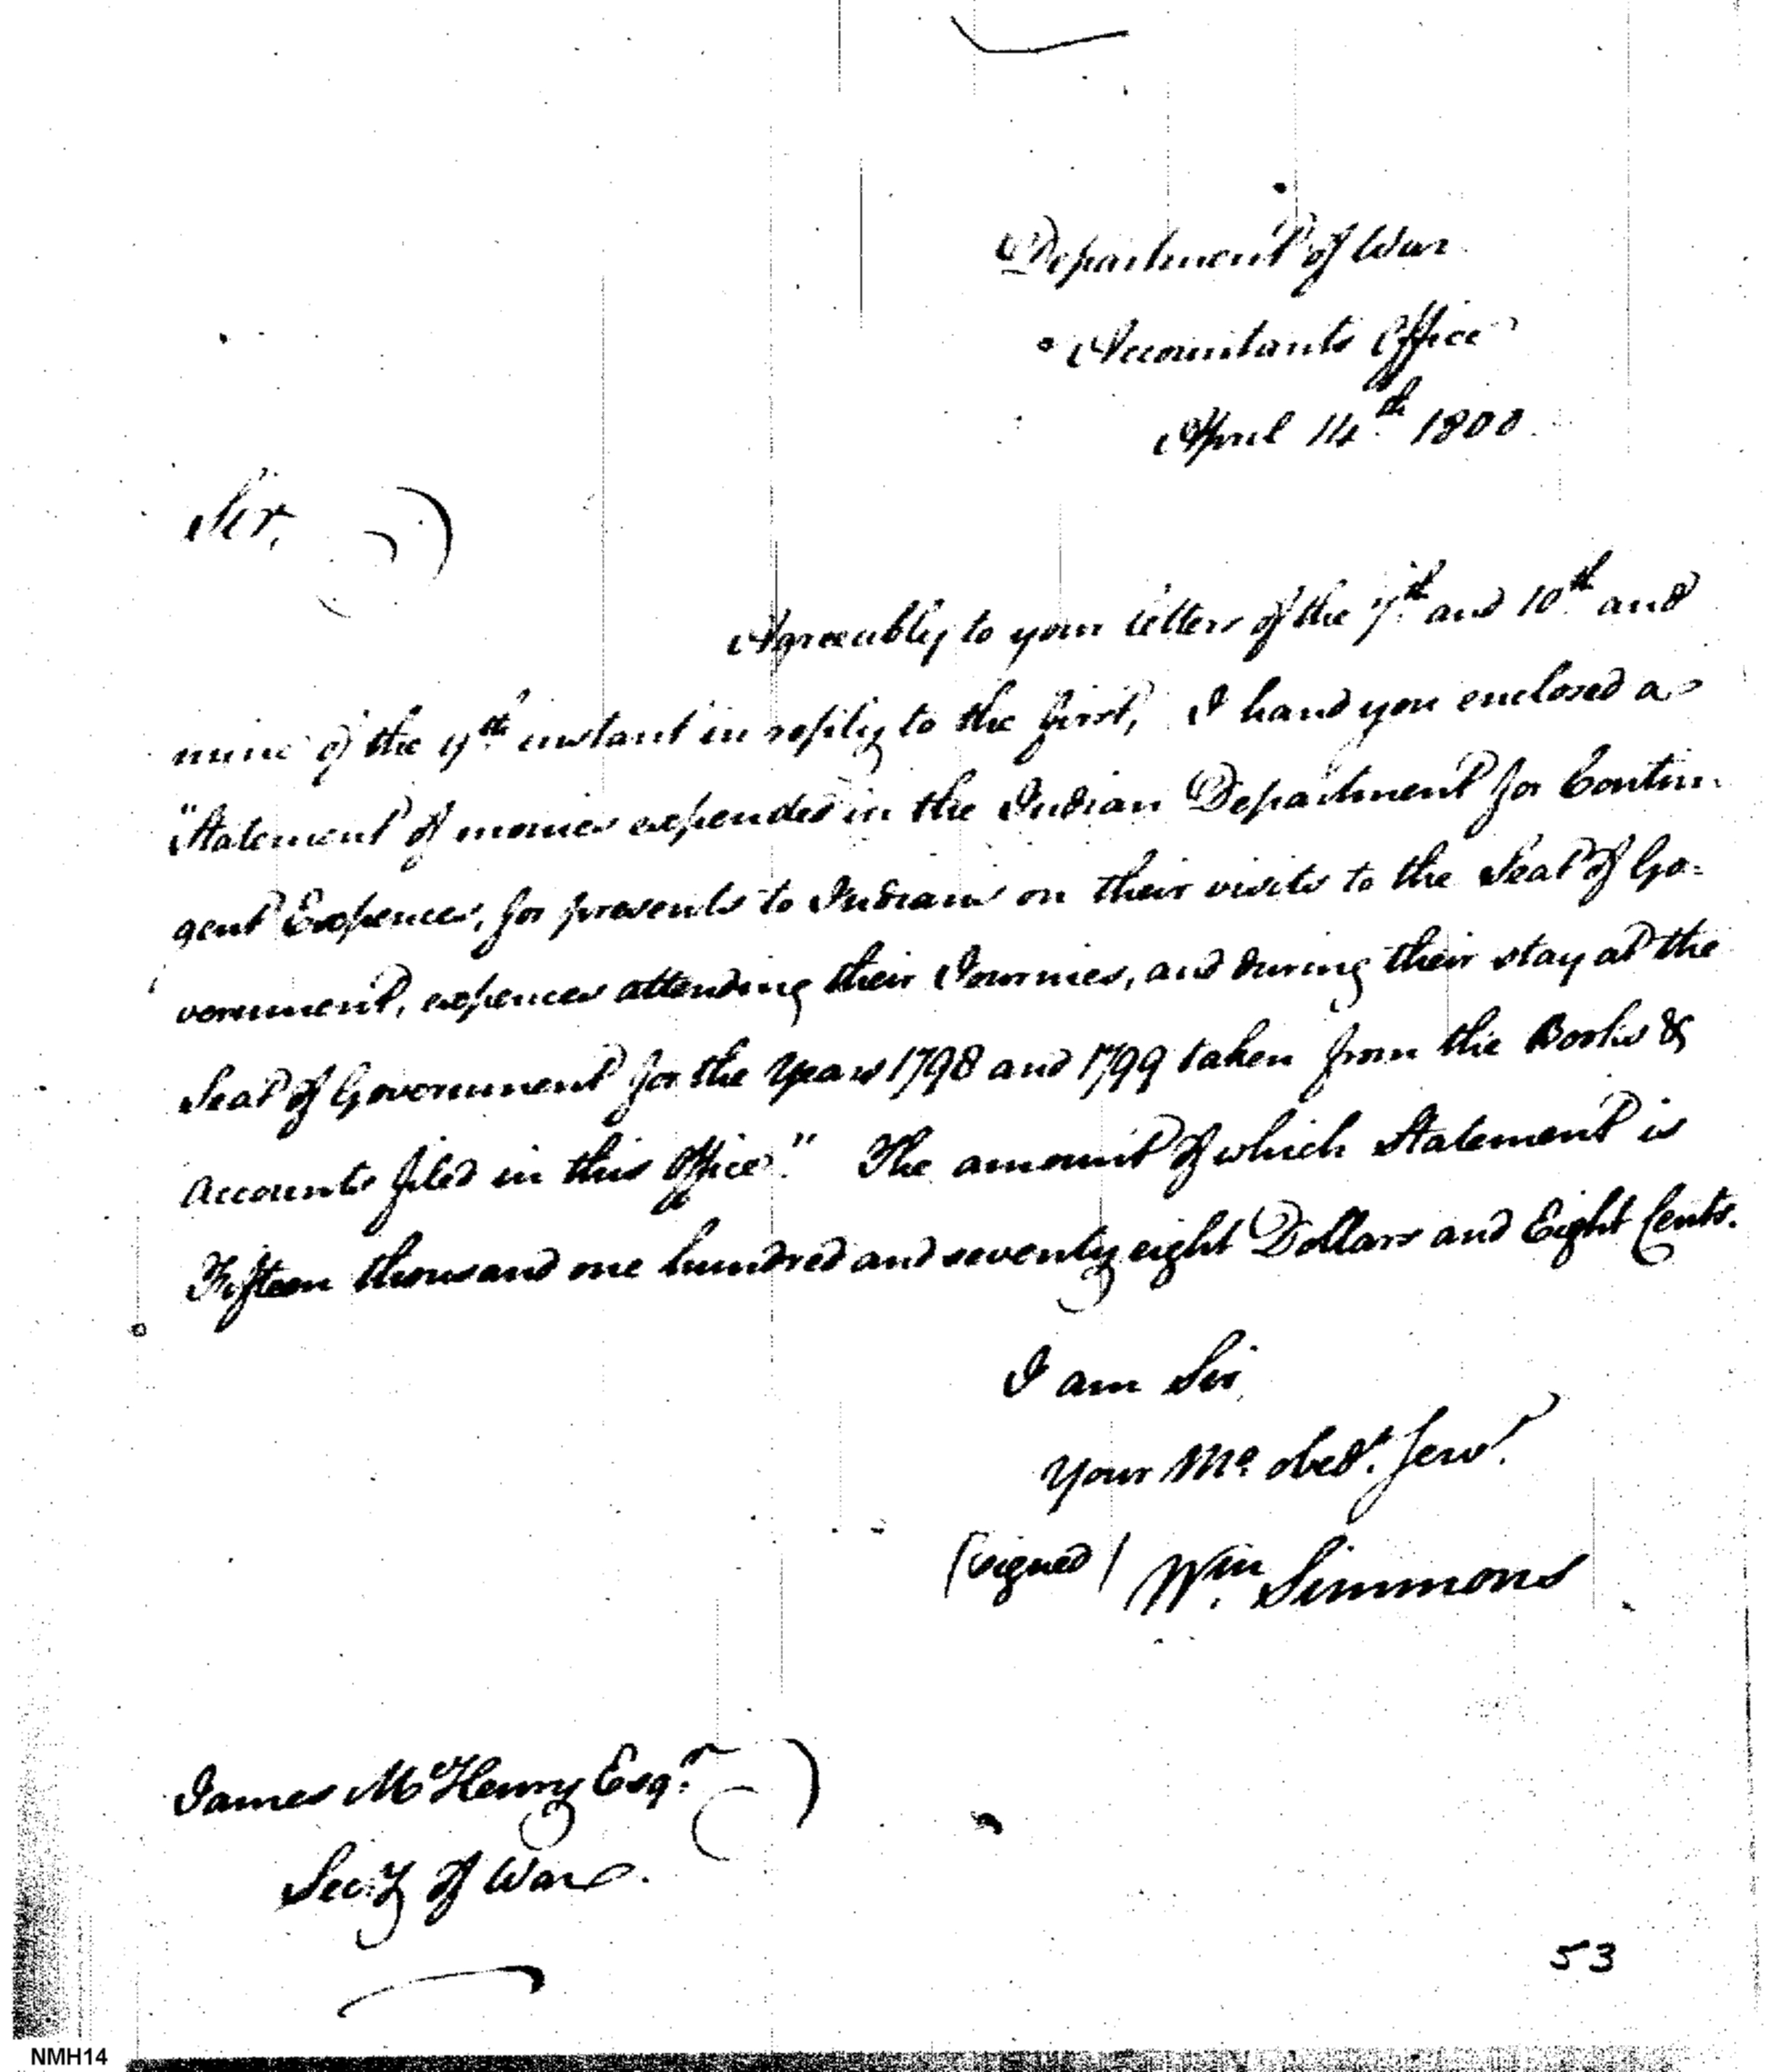 Department of War
Accountants Office
April 14th 1800.
Sir,
Agreeably to your letters of the 7th and 10th and
mine of the 9th instant in reply to the first, I hand you enclosed a
"Statement of monies expended in the Indian Department for Contin-
gent Expences, for presents to Indians on their visits to the Seat of Go=
vernment, expences attending their Journies, and during their stay at the
Seat of Government for the Years 1798 and 1799 taken from the Books &
Accounts filed in this Office." The amount of which Statement is
Fifteen thousand one hundred and seventy eight Dollars and Eight Cents.
I am Sir,
Your Mo. obedt. Servt.
(signed) Wm. Simmons
James McHenry Esqr.
Secy. of War.
53
NMH14